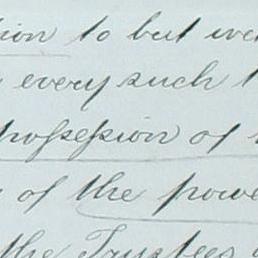 ion to but we
every such t
possession of
of the powe
the Trustees